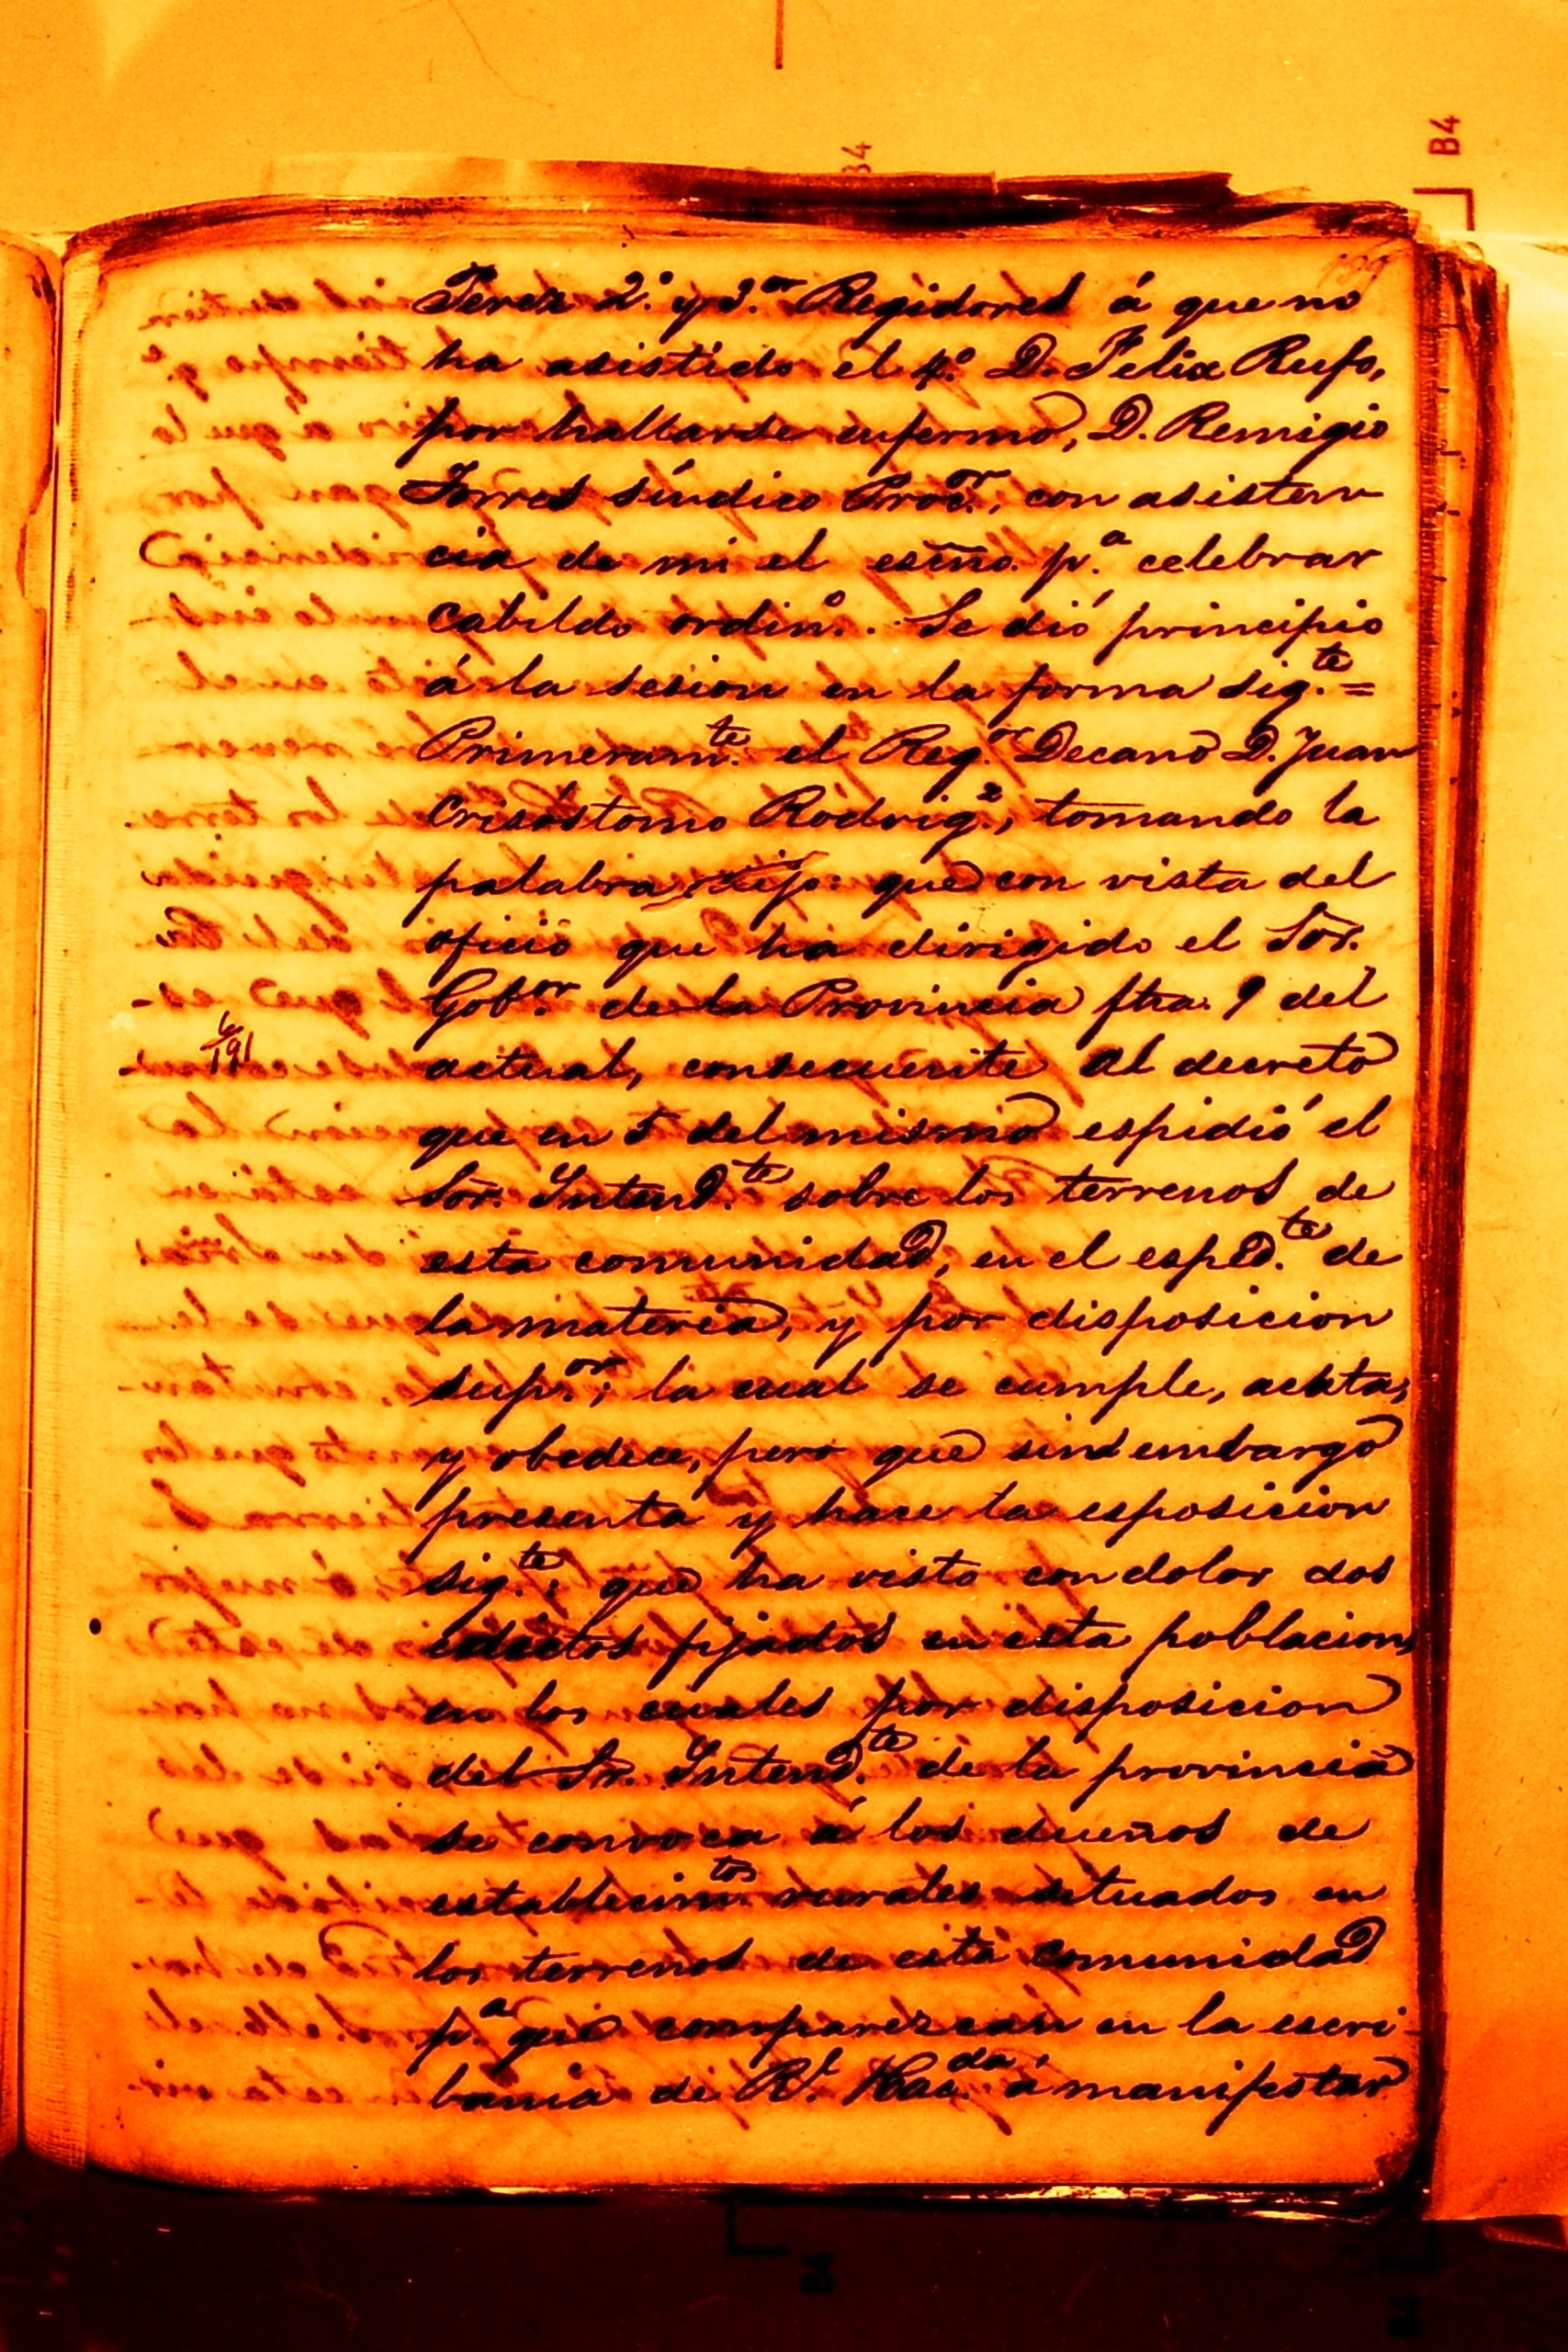 B4
Perez 2.º y 3.or Regidores á que no
ha asistido el 4.º D. Felix Rufo,
por hallarse enfermo, D. Remigio
Torres síndico Proc.or, con asisten
cia de mi el esño. p.a celebrar
Cabildo ordin.º. Se dió principio
á la sesion en la forma sig.te =
Primeram.te el Reg.or Decano D. Juan
Crisóstomo Rodrig.z, tomando la
palabra dijo: que con vista del
oficio que ha dirigido el Sõr.
Gob.or de la Provincia fha. 9 del
actual, consecuente al decreto
que en 5 del mismo espidió el
Sõr. Intend.te sobre los terrenos de
esta comunidad, en el esped.te de
la materia, y por disposicion
sup.or; la cual se cumple, acata,
y obedece, pero que sin embargo
presenta y hace la esposicion
sig.te: que ha visto con dolor dos
edictos fijados en esta poblacion,
en los cuales por disposicion
del Sr. Intend.te de la provincia
se convoca á los dueños de
establecim.tos rurales situados en
los terrenos de esta comunidad
p.a que comparezcan en la escri-
bania de R.l Hac.da á manifestar